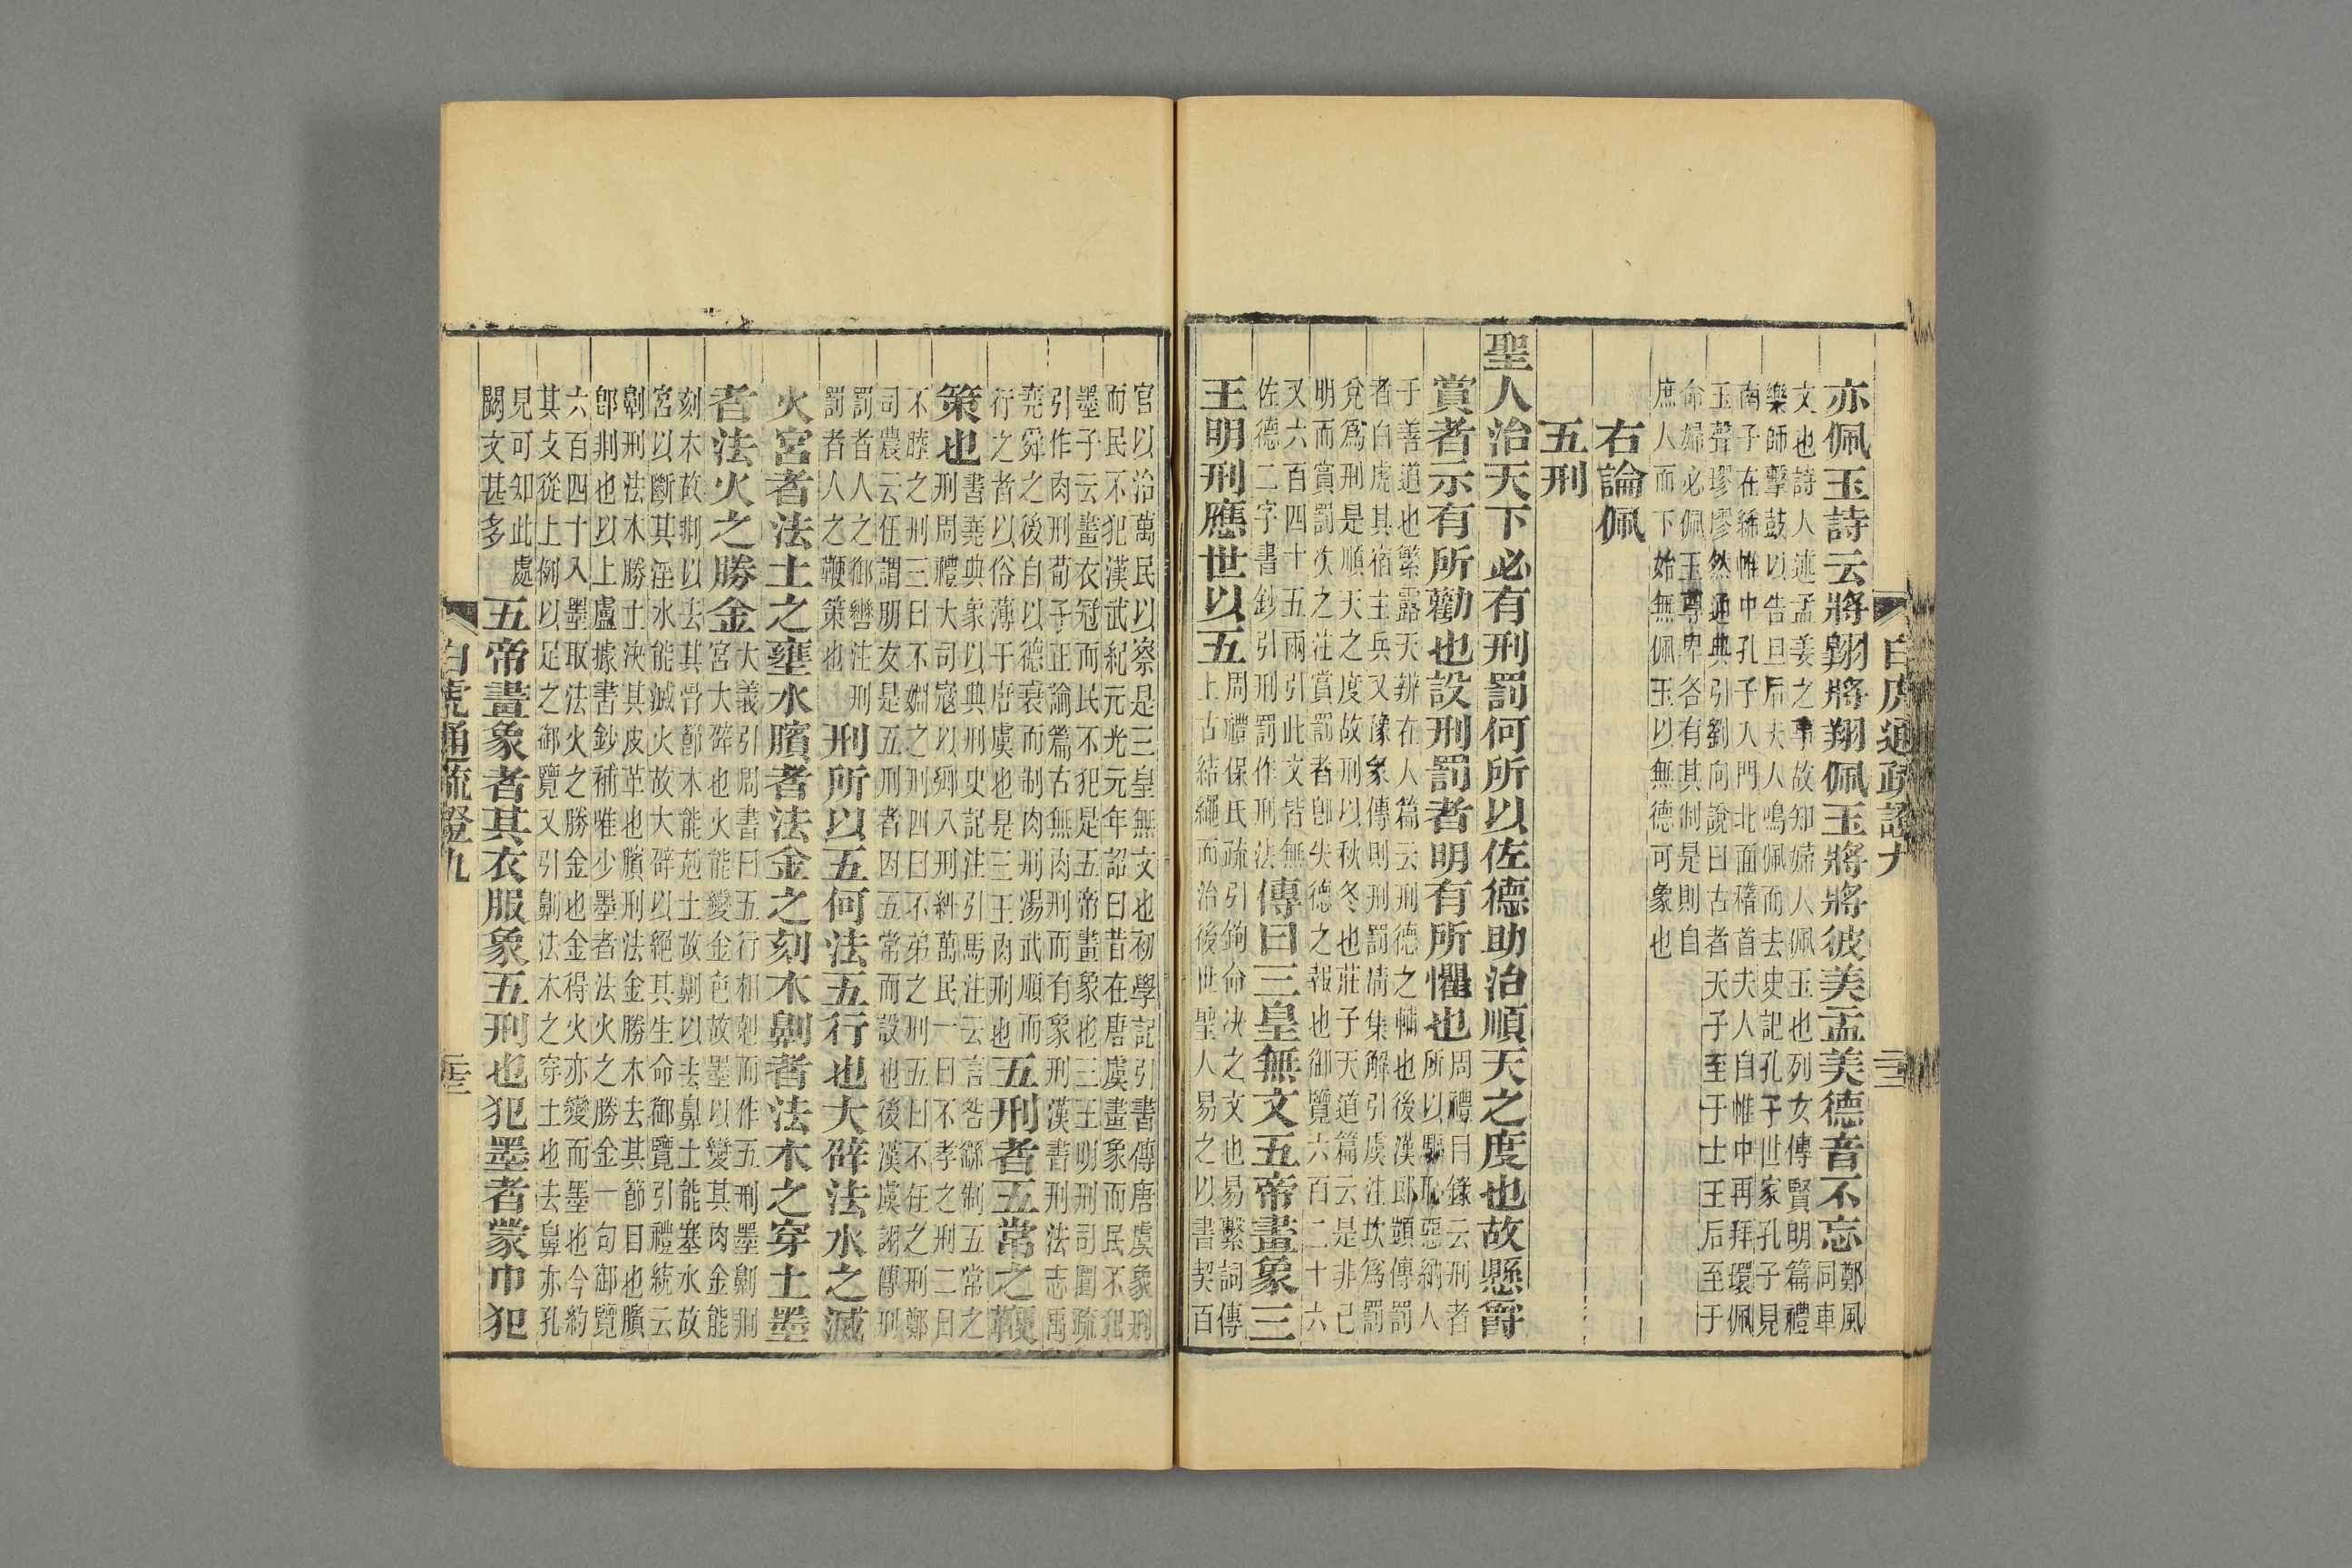 白虎通疏證九
亦佩玉詩云將翺將翔佩玉將將彼美孟姜德音不忘
鄭風
同車
文也詩人述孟姜之事故知婦人佩玉也列女傳賢明篇禮
樂師擊鼓以告旦后夫人鳴佩而去史記孔子世家孔子見
南子在絺帷中孔子入門北面稽首夫人自帷中再拜環佩
玉聲璆璆然通典引劉向說曰古者天子至于士王后至于
命婦必佩玉尊卑各有其制是則自
庶人而下始無佩玉以無德可象也
右論佩
五刑
聖人治天下必有刑罰何所以佐德助治順天之度也故懸爵
賞者示有所勸也設刑罰者明有所懼也
周禮目錄云刑者
所以驅恥惡納人
于善道也繁露天辨在人篇云刑德之輔也後漢郎顗傳罰
者白虎其宿主兵又豫象傳則刑罰清集解引虞注坎爲罰
兌爲刑是順天之度故刑以秋冬也莊子天道篇云是非已
明而賞罰次之注賞罰者卽失德之報也御覽六百二十六
又六百四十五兩引此文皆無
佐德二字書鈔引刑罰作刑法
傳曰三皇無文五帝畫象三
王明刑應世以五
周禮保氏疏引鉤命決之文也易繫詞傳
上古結繩而治後世聖人易之以書契百
官以治萬民以察是三皇無文也初學記引書傳唐虞象刑
而民不犯漢武紀元光元年詔曰昔在唐虞畫象而民不犯
墨子云畫衣冠而民不犯是五帝畫象也三王明刑司圜疏
引作肉刑荀子正論篇古無肉刑而有象刑漢書刑法志禹
堯舜之後自以德衰而制肉刑湯武順而
行之者以俗薄于唐虞也是三王肉刑也
五刑者五常之鞭
策也
書堯典象以典刑史記注引馬注云言咎繇制五常之
刑周禮大司寇以鄉八刑糾萬民一曰不孝之刑二曰
不睦之刑三曰不婣之刑四曰不弟之刑五曰不任之刑鄭
司農云任謂朋友是五刑者因五常而設也後漢虞詡傳刑
罰者人之御轡注刑
罰者人之鞭策也
刑所以五何法五行也大辟法水之滅
火宮者法土之壅水臏者法金之刻木劓者法木之穿土墨
者法火之勝金
大義引周書曰五行相剋而作五刑墨劓剕
宮大辟也火能變金色故墨以變其肉金能
刻木故剕以去其骨節木能剋土故劓以去鼻土能塞水故
宮以斷其淫水能滅火故大辟以絕其生命御覽引禮統云
劓刑法木勝土決其皮革也臏刑法金勝木去其節目也臏
卽剕也以上盧據書鈔補唯少墨者法火之勝金一句御覽
六百四十八墨取法火之勝金也金得火亦變而墨也今約
其文從上例以足之御覽又引劓法木之穿土也去鼻亦孔
見可知此處
闕文甚多
五帝畫象者其衣服象五刑也犯墨者蒙巾犯
白虎通疏證九